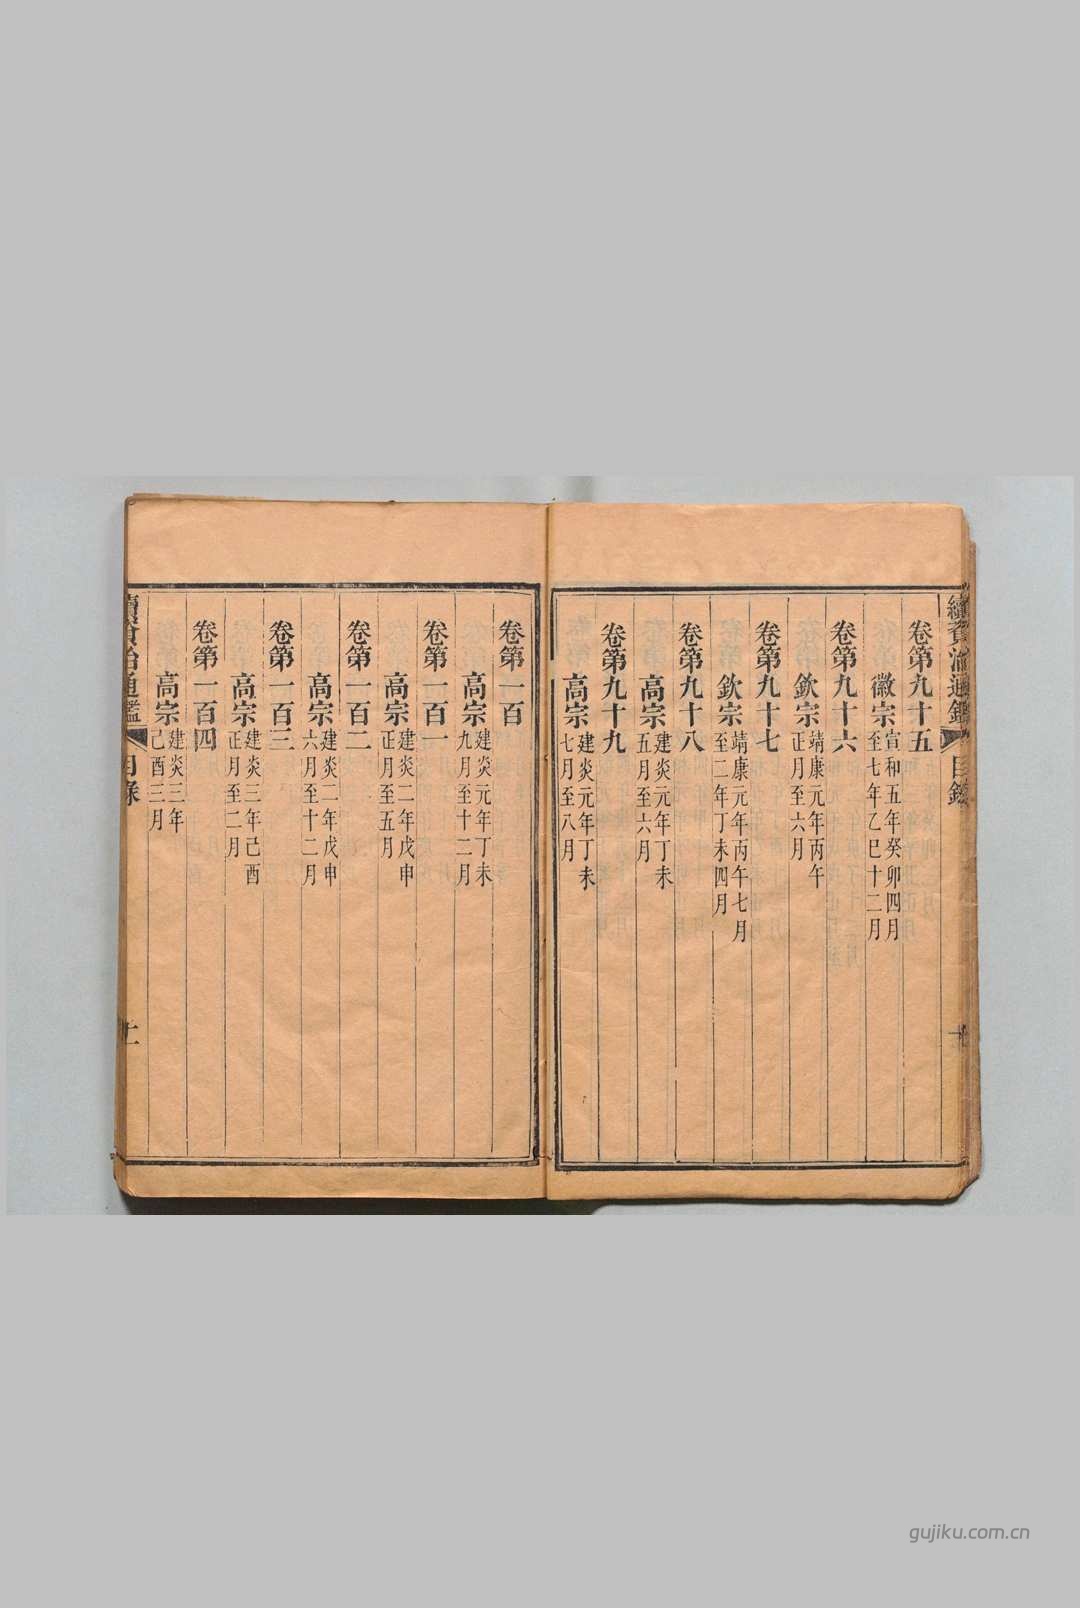 續資治通鑑 目錄
卷第九十五
徽宗
宣和五年癸卯四月
至七年乙巳十二月
卷第九十六
欽宗
靖康元年丙午
正月至六月
卷第九十七
欽宗
靖康元年丙午七月
至二年丁未四月
卷第九十八
高宗
建炎元年丁未
五月至六月
卷第九十九
高宗
建炎元年丁未
七月至八月
卷第一百
高宗
建炎元年丁未
九月至十二月
卷第一百一
高宗
建炎二年戊申
正月至五月
卷第一百二
高宗
建炎二年戊申
六月至十二月
卷第一百三
高宗
建炎三年己酉
正月至二月
卷第一百四
高宗
建炎三年
己酉三月
續資治通鑑 目錄
gujiku.com.cn